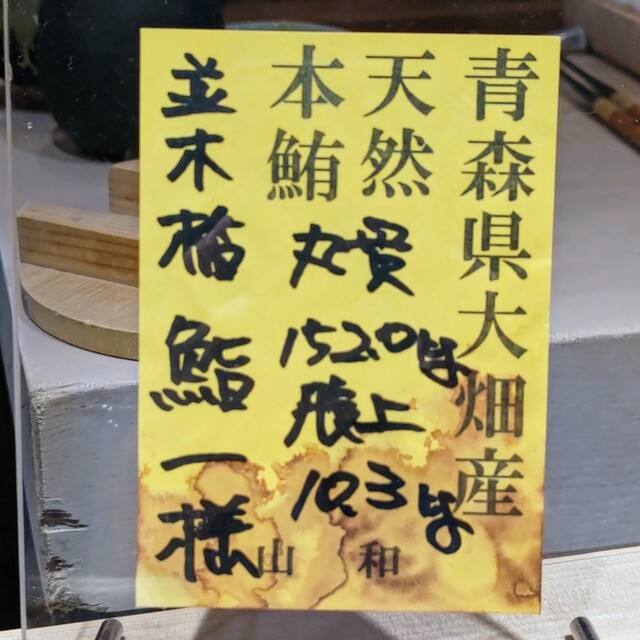 青森県大畑産
天然
本鮪
丸貫
152.0kg
腹上
10.3kg
山和
並木橋
鮨一様